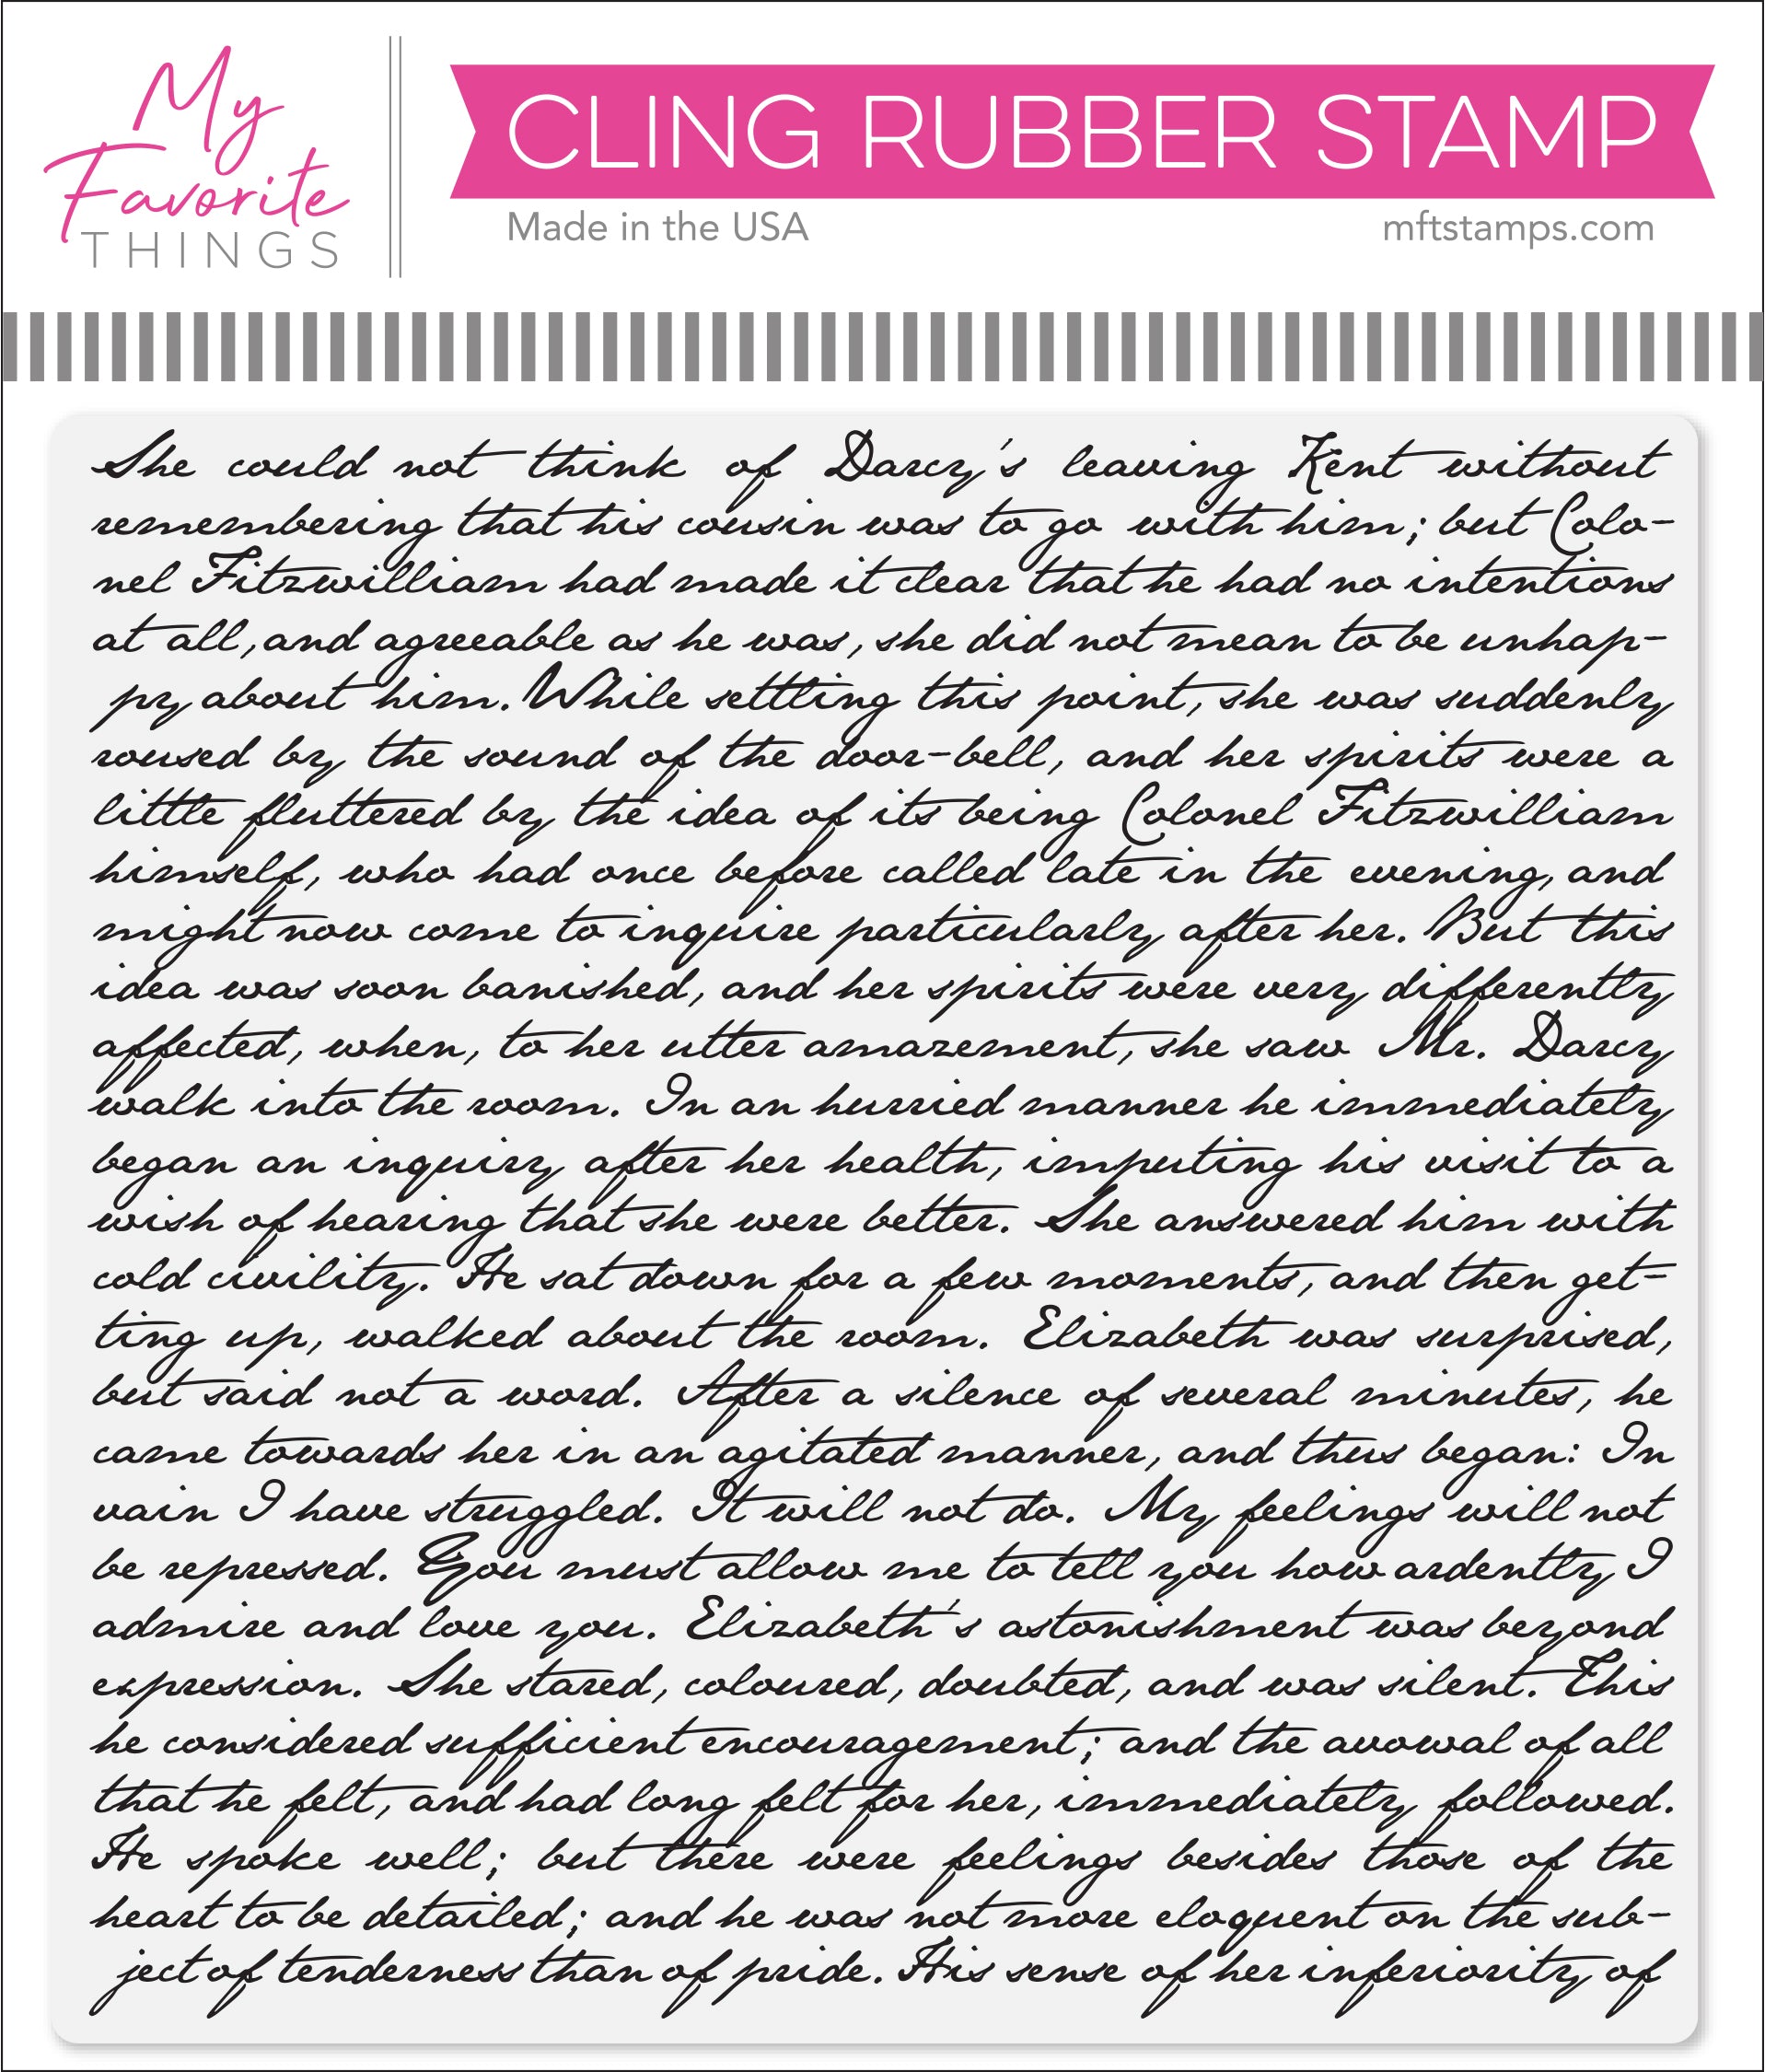 My
Favorite
THINGS
CLING RUBBER STAMP
Made in the USA
mftstamps.com
She could not think of Darcy's leaving Kent without
remembering that his cousin was to go with him; but Colo-
nel Fitzwilliam had made it clear that he had no intentions
at all, and agreeable as he was, she did not mean to be unhap-
py about him. While settling this point, she was suddenly
roused by the sound of the door-bell, and her spirits were a
little fluttered by the idea of its being Colonel Fitzwilliam
himself, who had once before called late in the evening, and
might now come to inquire particularly after her. But this
idea was soon banished, and her spirits were very differently
affected, when, to her utter amazement, she saw Mr. Darcy
walk into the room. In an hurried manner he immediately
began an inquiry after her health, imputing his visit to a
wish of hearing that she were better. She answered him with
cold civility. He sat down for a few moments, and then get-
ting up, walked about the room. Elizabeth was surprised,
but said not a word. After a silence of several minutes, he
came towards her in an agitated manner, and thus began: In
vain I have struggled. It will not do. My feelings will not
be repressed. You must allow me to tell you how ardently I
admire and love you. Elizabeth's astonishment was beyond
expression. She stared, coloured, doubted, and was silent. This
he considered sufficient encouragement; and the avowal of all
that he felt, and had long felt for her, immediately followed.
He spoke well; but there were feelings besides those of the
heart to be detailed; and he was not more eloquent on the sub-
ject of tenderness than of pride. His sense of her inferiority of